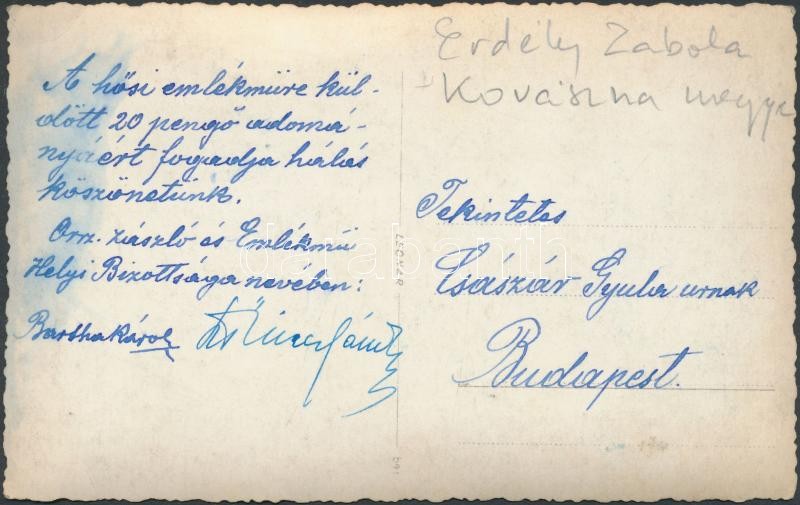 Erdély Zabola
Kovászna megye
A hősi emlékműre kül-
dött 20 pengő adomá-
nyáért fogadja hálás
köszönetünk.
Orsz. zászló és Emlékmű
Helyi Bizottsága nevében:
Bartha Károly
Tekintetes
Császár Gyula urnak
Budapest.
LEONAR
darabanth